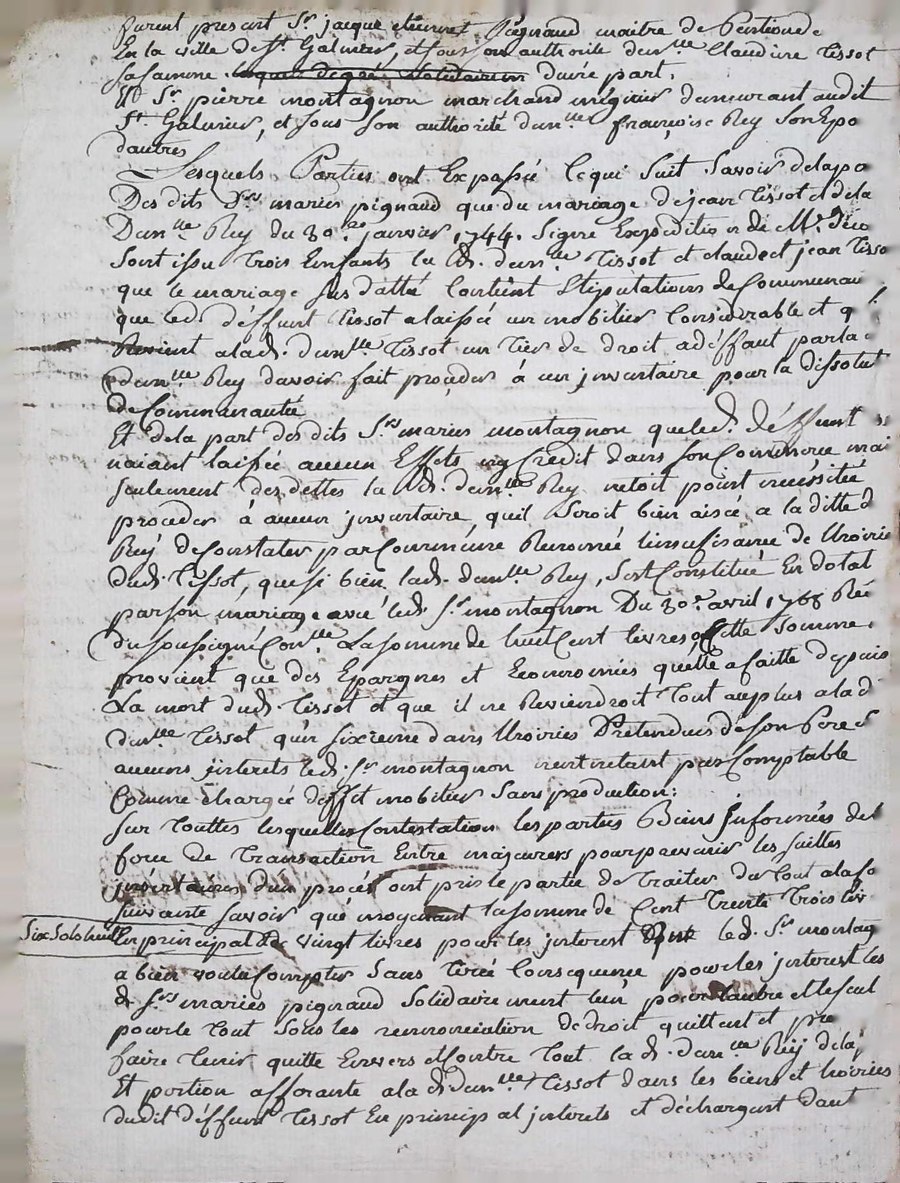 furent present Sr jacque etiennet Pignaud maitre de Pention de
En la ville de St. Galmier, et sous son authorité demlle Claudine Tissot
sa famme laquel degré Solidairem dune part.
Et Sr pierre montagnon marchand mégisier demeurant audit
St. Galmier, et sous son authorité demlle françoise Rey son Epo
dautres
Lesquels Parties ont Expossé le qui suit savoir de la pa
Des dits Srs mariés pignaud que du mariage de jean Tissot et de la
Demlle Rey du 30e janvier 1744. Signé Expedition de Me
Sont issu trois Enfants la d. demlle Tissot et claude et jean Tisso
que le mariage susdatté Contient Stipulations de Communau
que led. déffunt Tissot a laissé un mobilier Considérable et q
Revient a lad. demlle Tissot un tier de droit a déffaut par la
demlle Rey davoir fait proceder à un jnventaire pour la dissolut
de Communauté
Et de la part des dits Srs mariés montagnon que led. déffunt
naiant laissée aucun Effets ny Credit dans son Commerce mai
seulement des dettes la d. demlle Rey netoit point necessité
proceder à aucun jnventaire, quil seroit bien aisé a la ditte d
Rey de Constater par Commune Renomée linsufisance de lhoirie
dud. Tissot, que si bien lad. demlle Rey, sest Constitué En dotal
par son mariage avec led. Sr montagnon Du 30e avril 1768 Ré
du soussigné Conre La somme de huit Cent livres Cette somme
provient que des Epargnes et Economies quelle a faitte depuis
La mort dud. Tissot et que il ne Reviendroit tout au plus a la d
demlle Tissot quun sixieme dans lhoiries Pretendues de son Pere
aucuns jnterets led. Sr montagnon nentretant pas Comptable
Comme chargée deffet mobilier sans production:
Sur touttes lesquelles Contestation les parties Biens Informés de l
force de transaction Entre majeures pour prevenir les suittes
dun procés ont pris le partie de traiter du tout a la fo
suivante savoir que moyenant la somme de Cent trente trois liv
Six Sols huit
En principal de vingt livres pour les jnterest que led. Sr montag
a bien voulu Compter sans tirée Consequence pour les jnterest les
d. Srs mariés pignaud Solidairement lun pour lautre et le seul
pour le tout sous les rennonciation de droit quittent et pro
faire tenir quitte Envers et Contre tout la d. demlle Rey de la
Et portion afferante a la d. demlle Tissot dans les biens et hoiries
dudit déffunt Tissot En princip al jnterets et déchargent dant